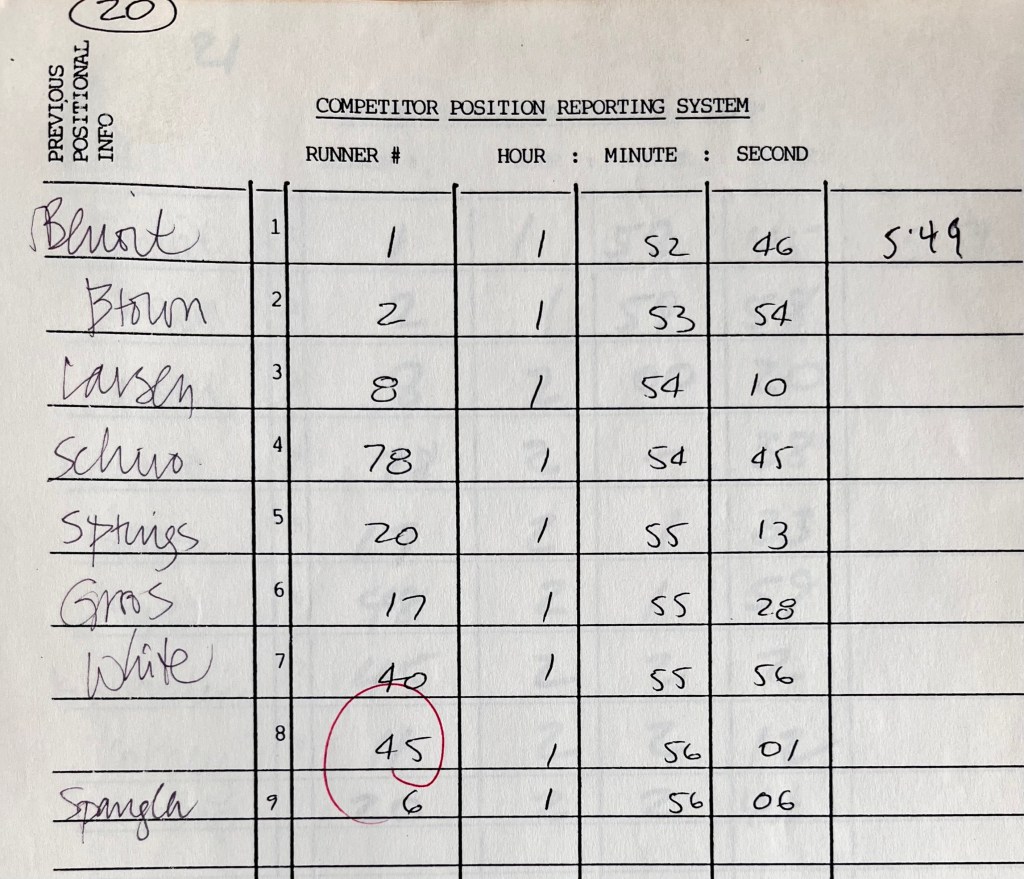 20
PREVIOUS
POSITIONAL
INFO
COMPETITOR POSITION REPORTING SYSTEM
RUNNER # HOUR : MINUTE : SECOND
Benoit 1 1 1 52 46 5:49
Brown 2 2 1 53 54
Larsen 3 8 1 54 10
4 78 1 54 45
Springs 5 20 1 55 13
Gros 6 17 1 55 28
White 7 40 1 55 56
8 45 1 56 01
Spangler 9 6 1 56 06